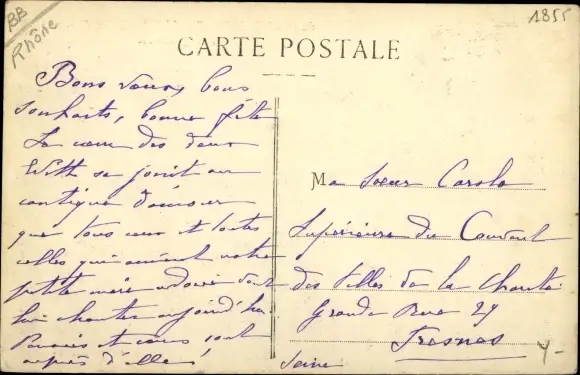 BB
Rhône
1855
CARTE POSTALE
Bons vœux, bons
souhaits, bonne fête
Le cœur des deux
se joint au
cantique d'amour
que tous ceux et toutes
celles qui aiment notre
petite mère adorée vont
lui chanter aujourd'hui
et sont
auprès d'elle,
Ma Sœur
Supérieure du Couvent
des Filles de la Charité
Grande Rue 29
Fresnes
Seine